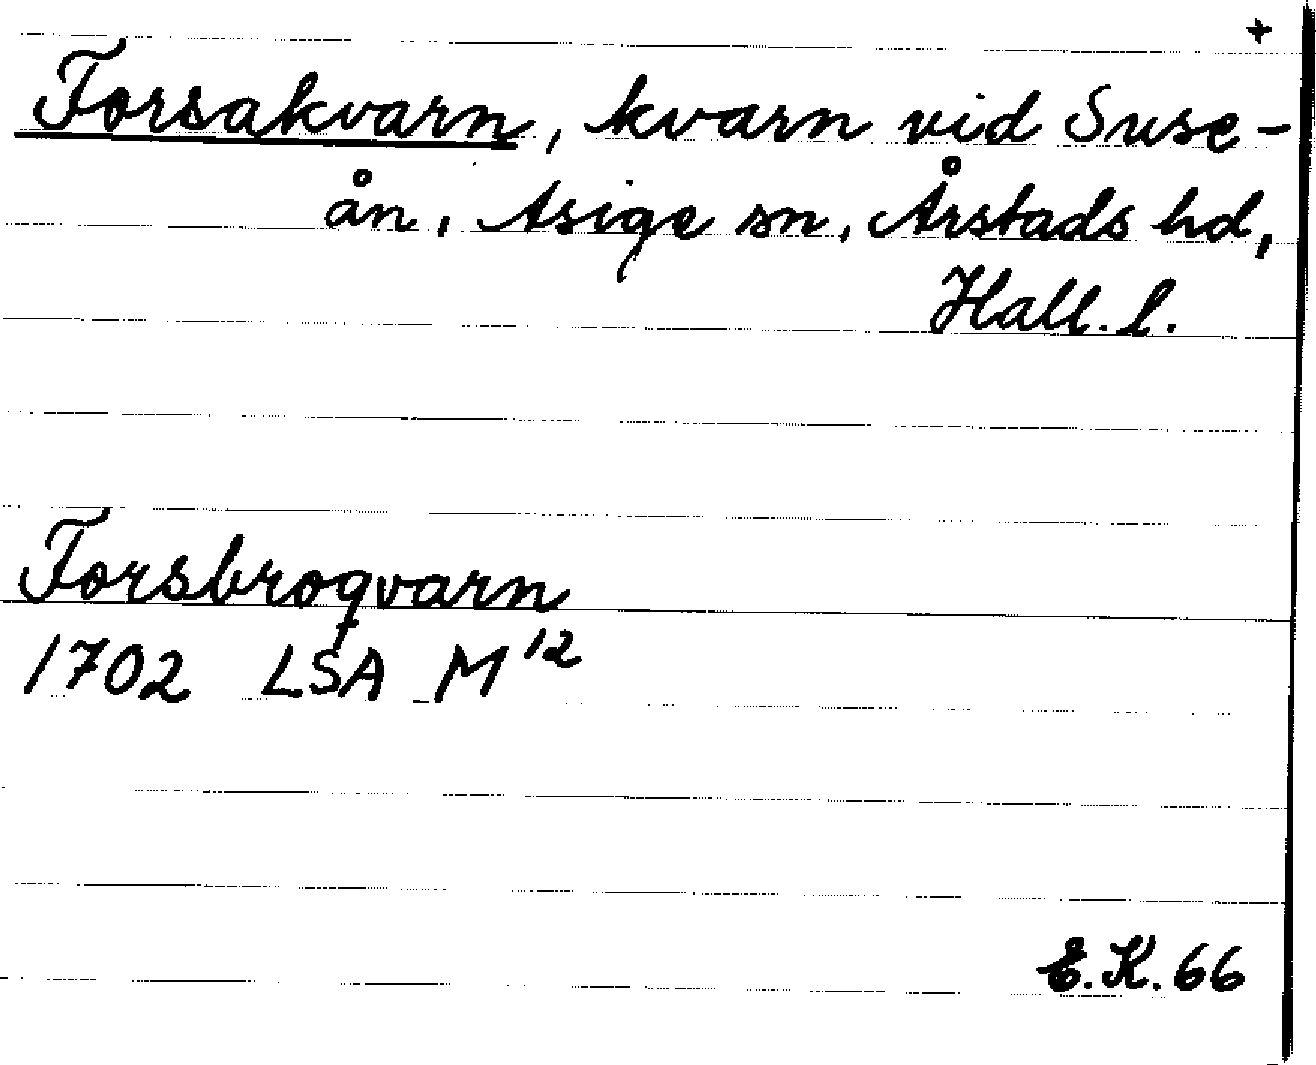 +
Forsakvarn, kvarn vid Suse-
ån, Asige sn, Årstads hd,
Hall. l.
Forsbroqvarn
1702 LSA M¹²
E.K. 66